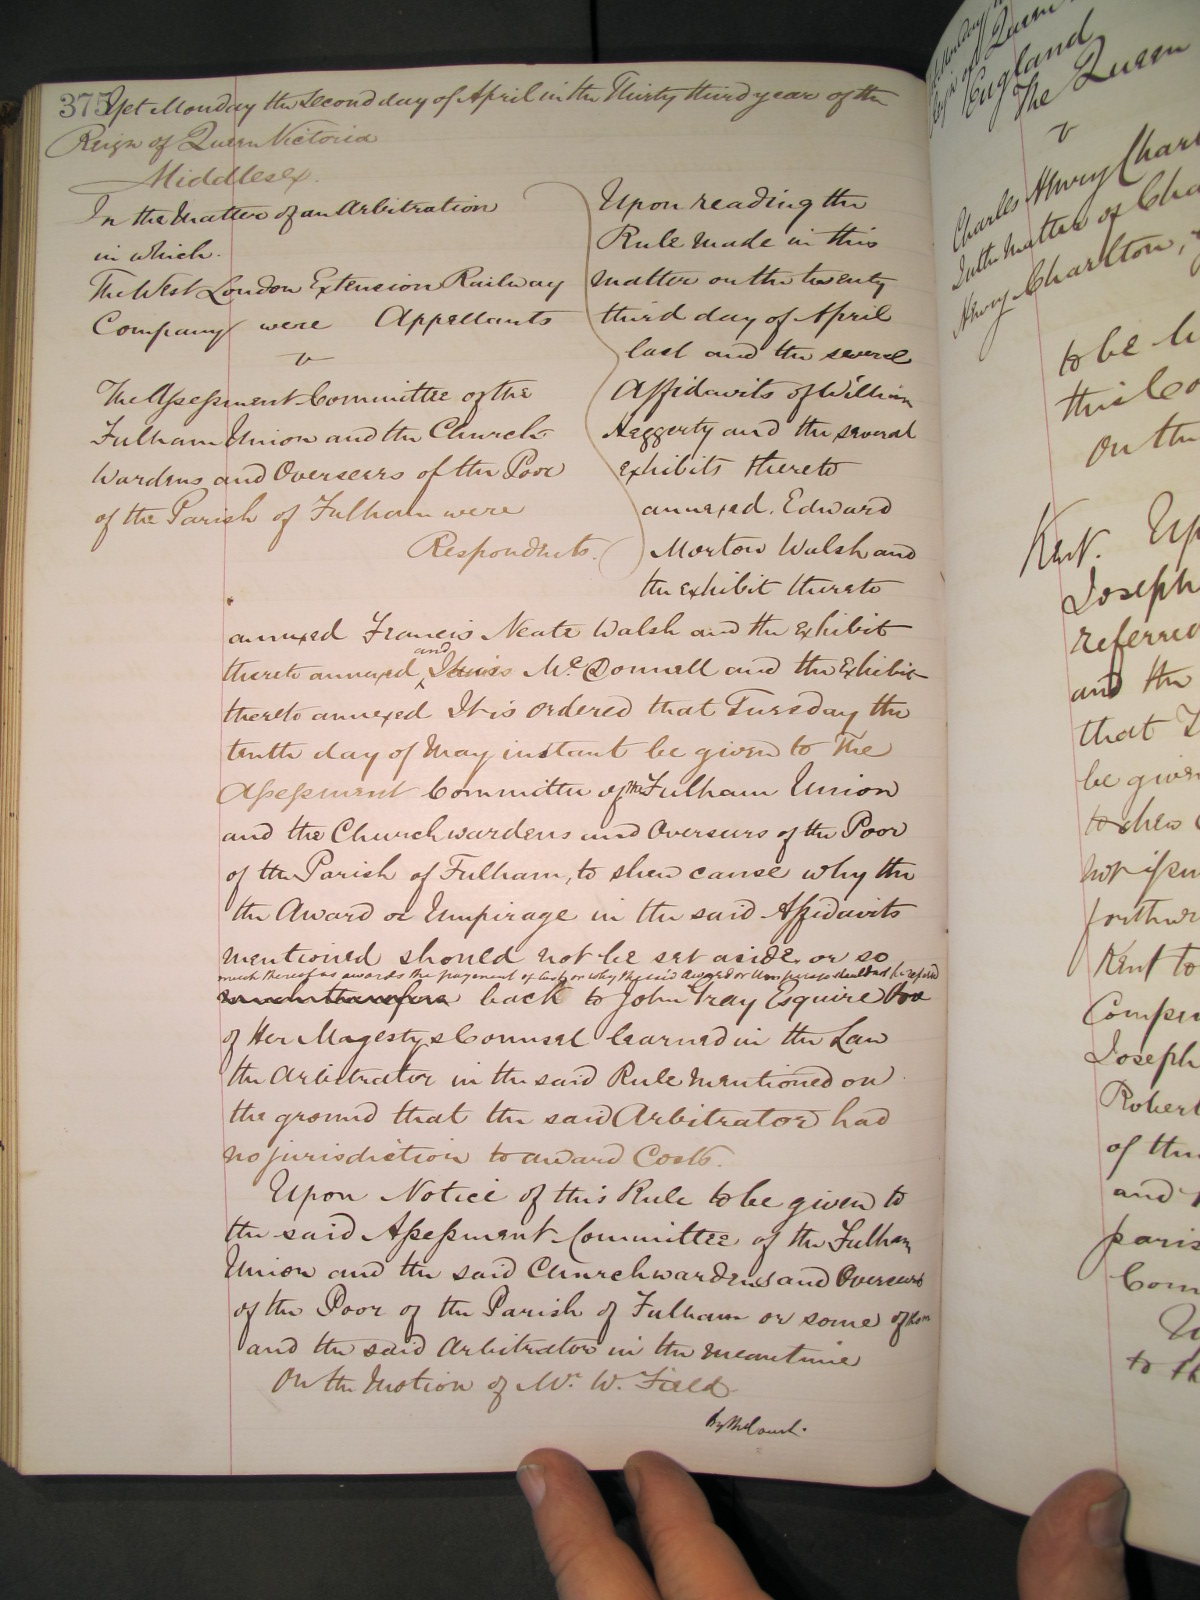 375 Yet Monday the Second day of April in the Thirty third year of the
Reign of Queen Victoria
Middlesex.
In the Matter of an Arbitration
in which
The West London Extension Railway
Company were Appellants
v
The Assessment Committee of the
Fulham Union and the Church
Wardens and Overseers of the Poor
of the Parish of Fulham were
Respondents.
Upon reading the
Rule made in this
matter on the twenty
third day of April
last and the several
Affidavits of William
Haggerty and the several
exhibits thereto
annexed. Edward
Morton Walsh and
the exhibit thereto
annexed Francis Neate Walsh and the Exhibit
thereto annexed and McDonnell and the Exhibit
thereto annexed It is ordered that Tuesday the
tenth day of May instant be given to The
Assessment Committee of the Fulham Union
and the Churchwardens and Overseers of the Poor
of the Parish of Fulham, to shew cause why the
the Award or Umpirage in the said Affidavits
mentioned should not be set aside or so
much thereof as awards the payment of Costs or why the said Award or Umpirage should not be referred
back to John Gray Esquire One
of Her Magestys Counsel learned in the Law
the Arbitrator in the said Rule mentioned on
the ground that the said Arbitrator had
no jurisdiction to award Costs.
Upon Notice of this Rule to be given to
the said Assessment Committee of the Fulham
Union and the said Churchwardens and Overseers
of the Poor of the Parish of Fulham or some of them
and the said Arbitrator in the meantime
On the Motion of Mr. W. Field
by the Court.
England
The Queen
v
Charles Henry Char
In the Matter of Cha
Henry Charlton,
to be
this Co
on the
Kent. Up
Joseph
referred
and the
that
be given
to shew
not issue
further
Kent to
Compen
Joseph
Robert
of the
and
paris
Com
to th